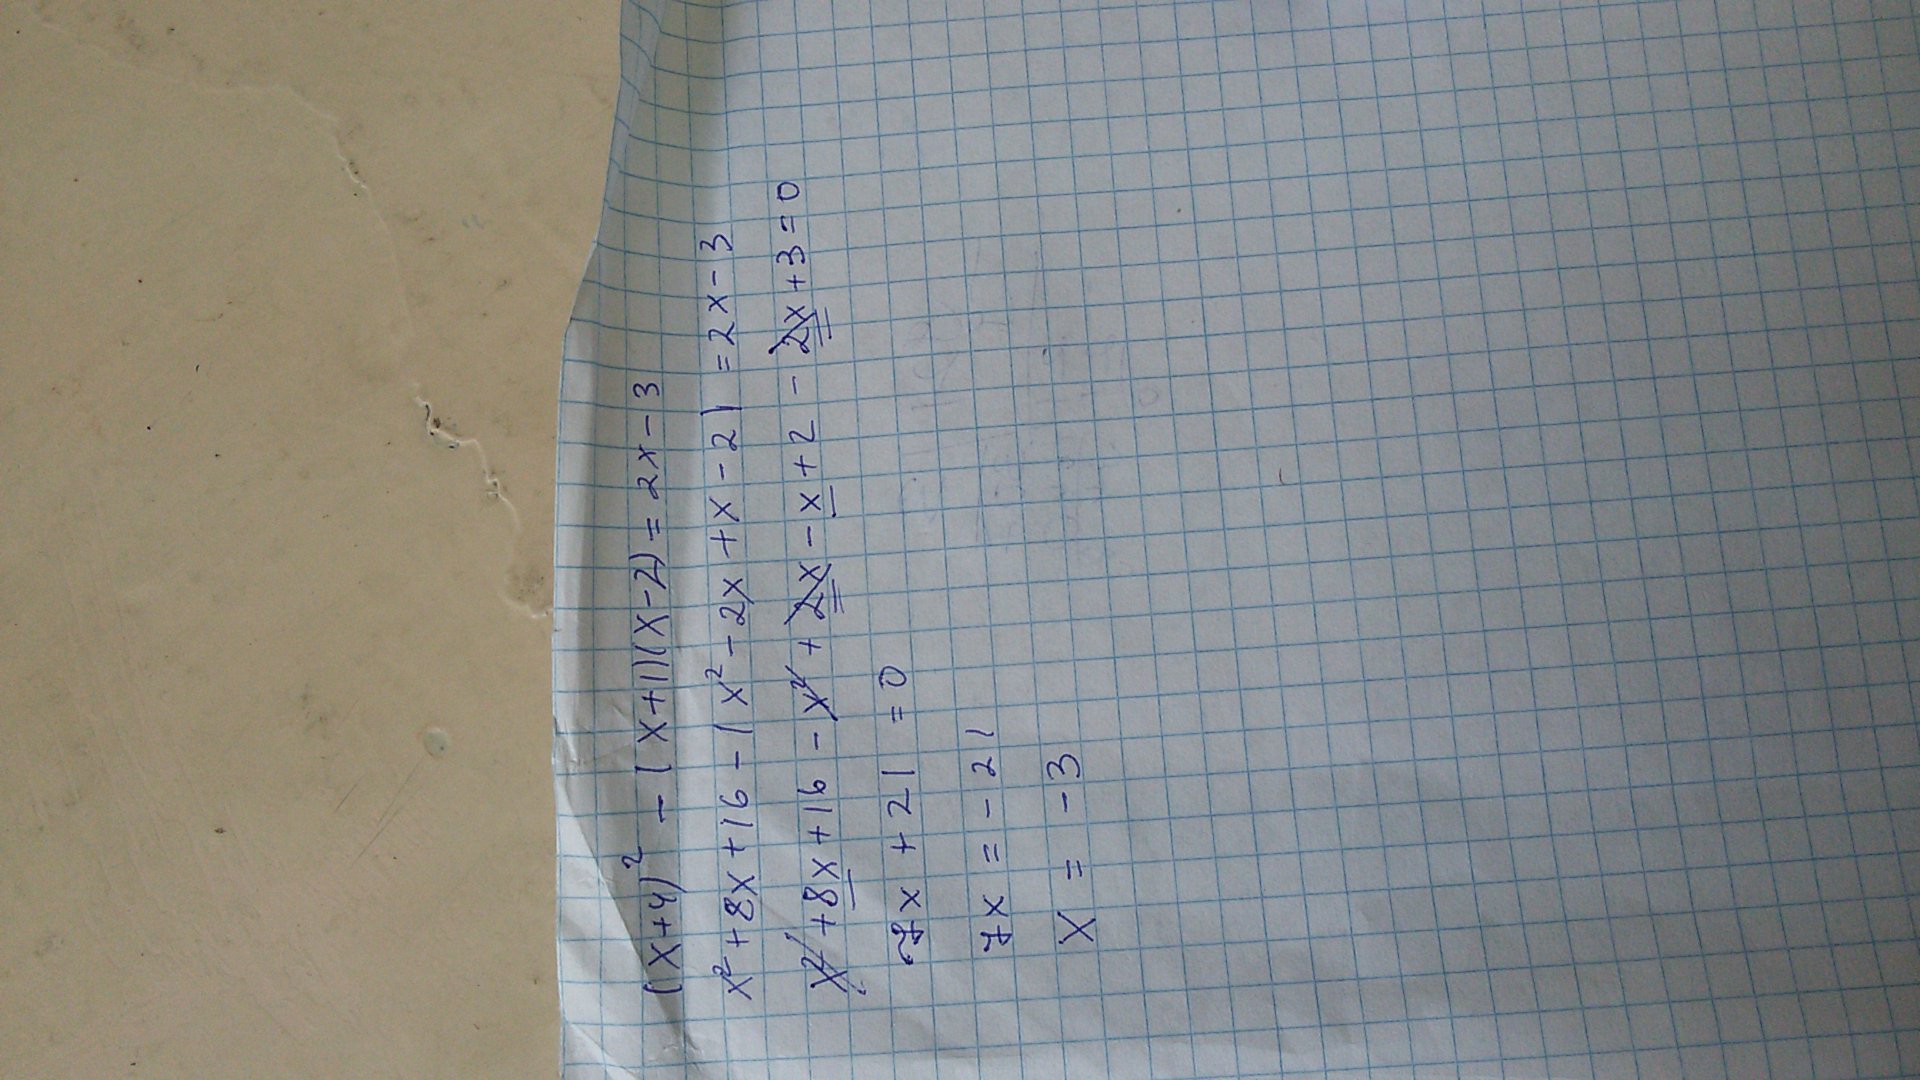 (x+4)² - (x+1)(x-2) = 2x - 3
x² + 8x + 16 - (x² - 2x + x - 2) = 2x - 3
x² + 8x + 16 - x² + 2x - x + 2 - 2x + 3 = 0
7x + 21 = 0
7x = -21
x = -3